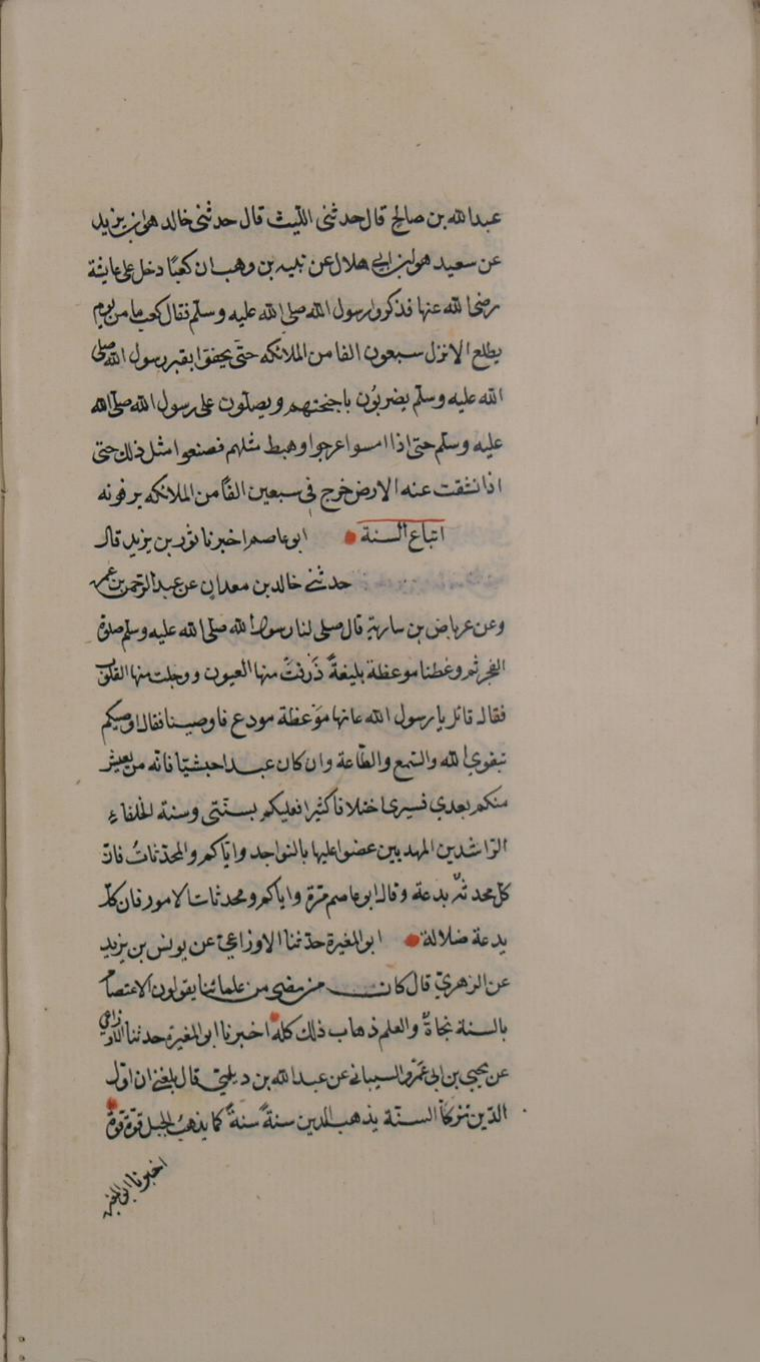 عبد الله بن صالح قال حدثنى الليث قال حدثنى خالد هو ابن يزيد
عن سعيد هو ابن ابى هلال عن نبيه بن وهب ان كعبًا دخل على عايشة
رضى الله عنها فذكروا رسول الله صلى الله عليه وسلم فقال كعب ما من يوم
يطلع الا نزل سبعون الفا من الملائكه حتّى يحفوا بقبر رسول الله صلى
الله عليه وسلم يضربُون باجنحتهم ويصلّون على رسول الله صلى الله
عليه وسلم حتى اذا امسوا عرجوا وهبط مثلهم فصنعوا مثل ذلك حتى
اذا نشقت عنه الارض خرج فى سبعين الفًا من الملائكه يزفونه
اتباع السنة ابو عاصم اخبرنا ثور بن يزيد قال
حدثنى خالد بن معدان عن عبد الرّحمن بن عمر
وعن عرباض بن سارية قال صلى لنا رسول الله صلى الله عليه وسلم صلوة
الفجر ثم وعظنا موعظة بليغةً ذَرفتْ منها العيون ووجلت منها القلوب
فقال قائل يا رسول الله كانها موَعظة مودع فاوصينا فقال اوصيكم
بتقوي الله والسّمع والطّاعة وان كان عبدا حبشيّا فانّه من يعيش
منكم بعدي فسيرى اختلافا كثيرا فعليكم بسنّتى وسنة الخلفاءِ
الرّاشدين المهديين عضوا عليها بالنواجد وايّاكم والمحدثاتُ فانّ
كل محدثة بدعة وقال ابو عاصم مرّة واياكم ومحدثات الامور فان كل
بدعة ضلالة ابو المغيرة حدّثنا الاوزاعي عن يونس بن يزيد
عن الزهريّ قال كان من مضى من علمائنا يقولون الاعتصام
بالسنة نجاةٌ والعلم ذهاب ذلك كله اخبرنا ابو المغيرة حدثنا الاوزاعي
عن يحيي بن ابى عَمْرو السيبانى عن عبد الله بن ديلمي قال بلغنى ان اوّل
الدّين تتركا السنّة يذهب الدين سنةً سنةً كما يذهبُ الحبل قوّة قوةً
اخبرنا ابو المغيرة